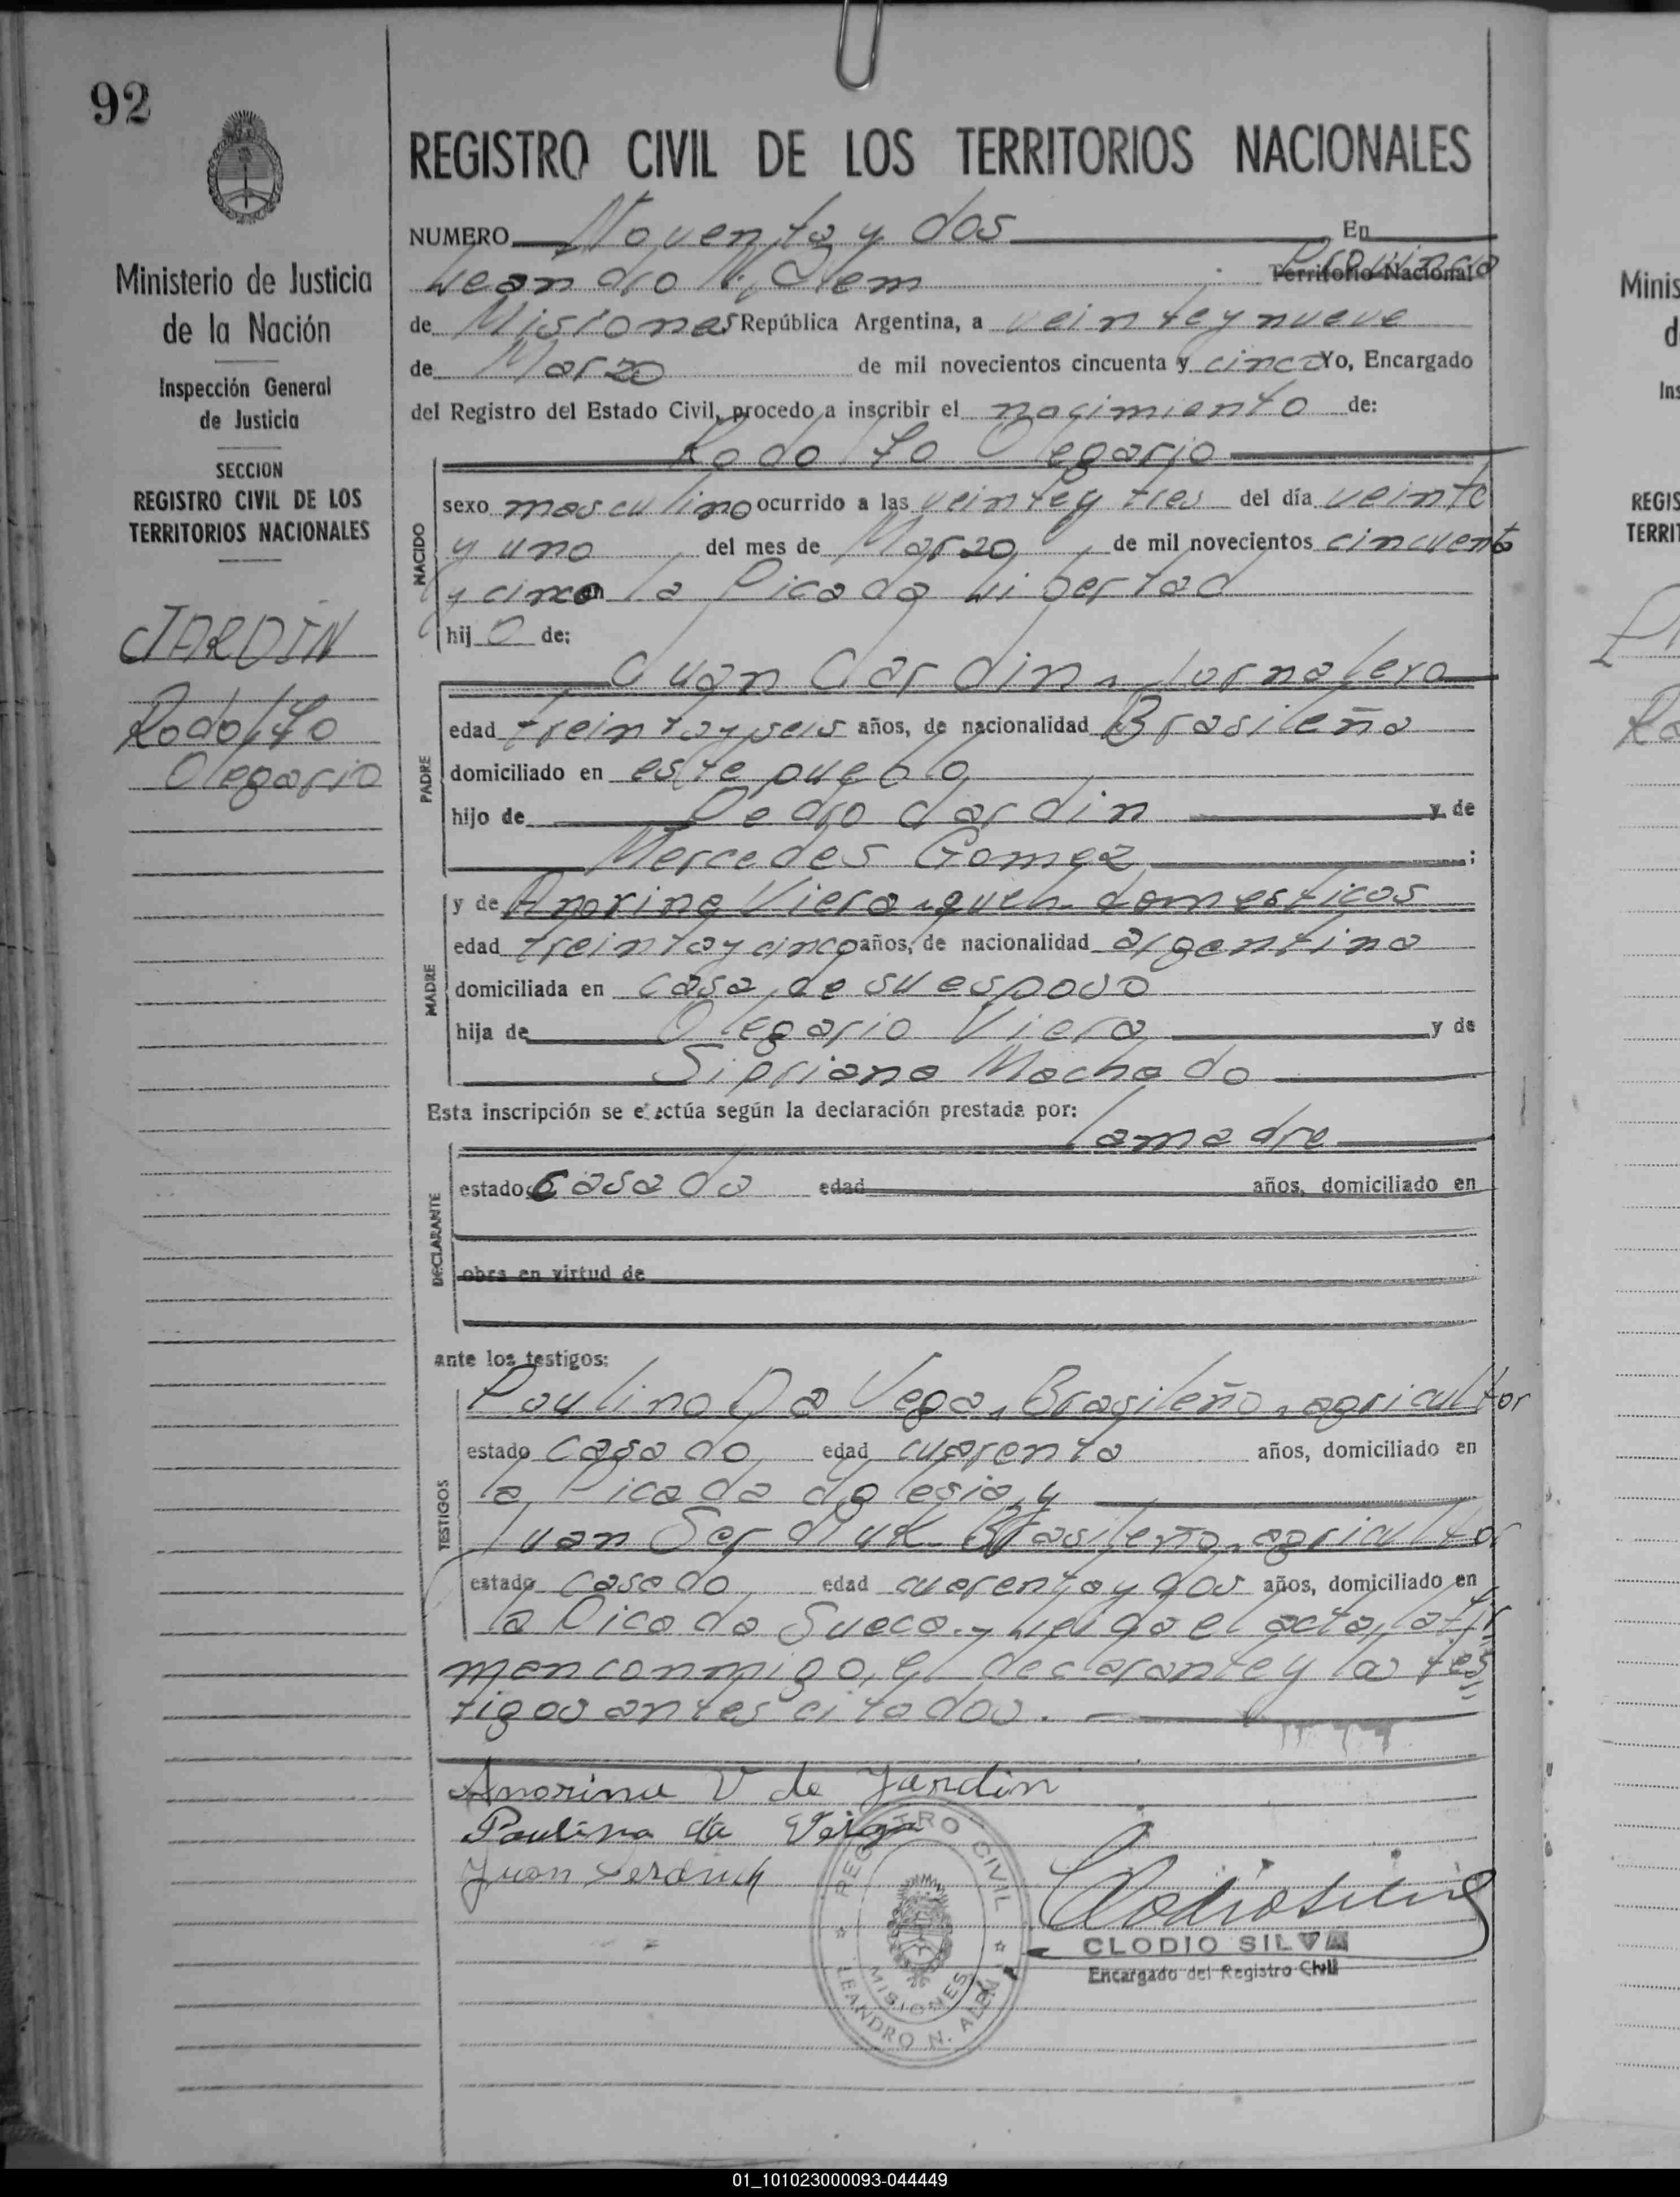 92
REGISTRO CIVIL DE LOS TERRITORIOS NACIONALES
NUMERO Noventa y dos En
Leandro N. Alem Territorio Nacional Provincia
de Misiones República Argentina, a veinte y nueve
de Marzo de mil novecientos cincuenta y cinco Yo, Encargado
del Registro del Estado Civil, procedo a inscribir el nacimiento de:
Rodolfo Olegario
NACIDO
sexo masculino ocurrido a las veinte y tres del día veinte
y uno del mes de Marzo de mil novecientos cincuenta
y cinco en la Picada Libertad
hijo de:
Juan Jardin, Jornalero
PADRE
edad treinta y seis años, de nacionalidad Brasileña
domiciliado en este pueblo
hijo de Pedro Jardin y de
Mercedes Gomez ;
MADRE
y de Viera domesticos
edad treinta y cinco años, de nacionalidad argentina
domiciliada en casa de su esposo
hija de Olegario Viera y de
Sipriana Machado
Esta inscripción se efectúa según la declaración prestada por:
la madre
DECLARANTE
estado casada edad años, domiciliado en
obra en virtud de
ante los testigos:
TESTIGOS
Paulino Da Vega, Brasileño, agricultor
estado casado edad cuarenta años, domiciliado en
la Picada y
Juan Serdiuk Brasileño, agricultor
estado casado edad cuarenta y dos años, domiciliado en
la Picada Sueca.- el acta, la fir
man conmigo, el declarante y los tes
tigos antes citados.
Anorina V de Jardin
Paulino da Veiga
Juan
Clodio Silva
CLODIO SILVA
Encargado del Registro Civil
REGISTRO CIVIL
MISIONES
LEANDRO N. ALEM
Ministerio de Justicia
de la Nación
Inspección General
de Justicia
SECCION
REGISTRO CIVIL DE LOS
TERRITORIOS NACIONALES
JARDIN
Rodolfo
Olegario
Minis
d
Ins
REGIS
TERRIT
01_101023000093-044449